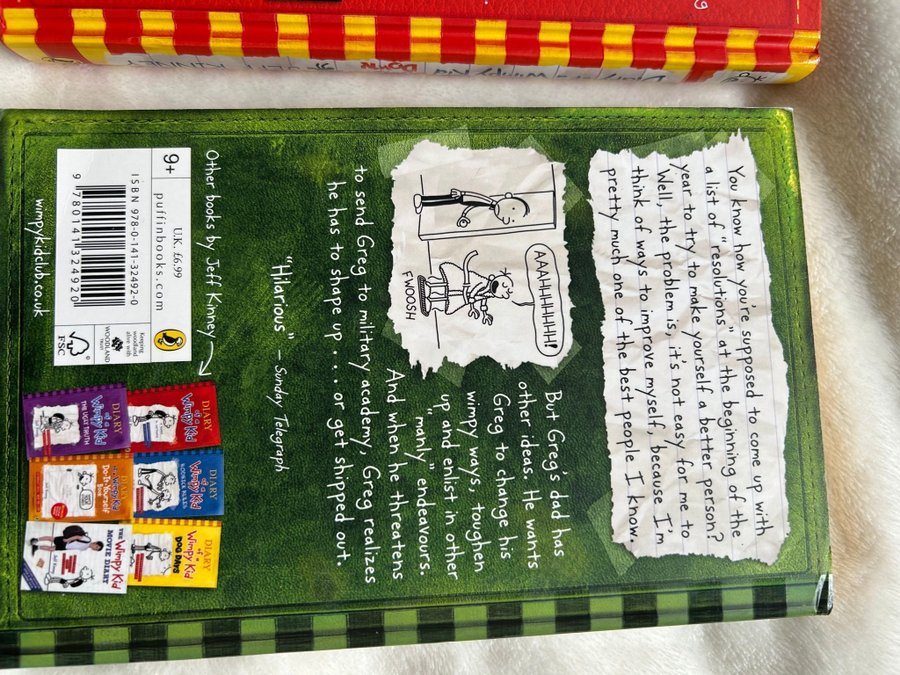 You know how you're supposed to come up with
a list of "resolutions" at the beginning of the
year to try to make yourself a better person?
Well, the problem is, it's not easy for me to
think of ways to improve myself, because I'm
pretty much one of the best people I know.
AAAHHHHH!
FWOOSH
But Greg's dad has
other ideas. He wants
Greg to change his
wimpy ways, toughen
up and enlist in other
"manly" endeavours.
And when he threatens
to send Greg to military academy, Greg realizes
he has to shape up . . . or get shipped out.
"Hilarious" – Sunday Telegraph
Other books by Jeff Kinney
DIARY
of a
Wimpy Kid
DIARY
of a
Wimpy Kid
RODRICK RULES
DIARY
of a
Wimpy Kid
DOG DAYS
DIARY
of a
Wimpy Kid
THE UGLY TRUTH
Wimpy Kid
Do-It-Yourself
Book
THE
Wimpy Kid
MOVIE DIARY
9+
U.K. £6.99
puffinbooks.com
ISBN 978-0-141-32492-0
9 780141 324920
Keeping
woodland
alive with
WOODLAND
TRUST
FSC
wimpykidclub.co.uk